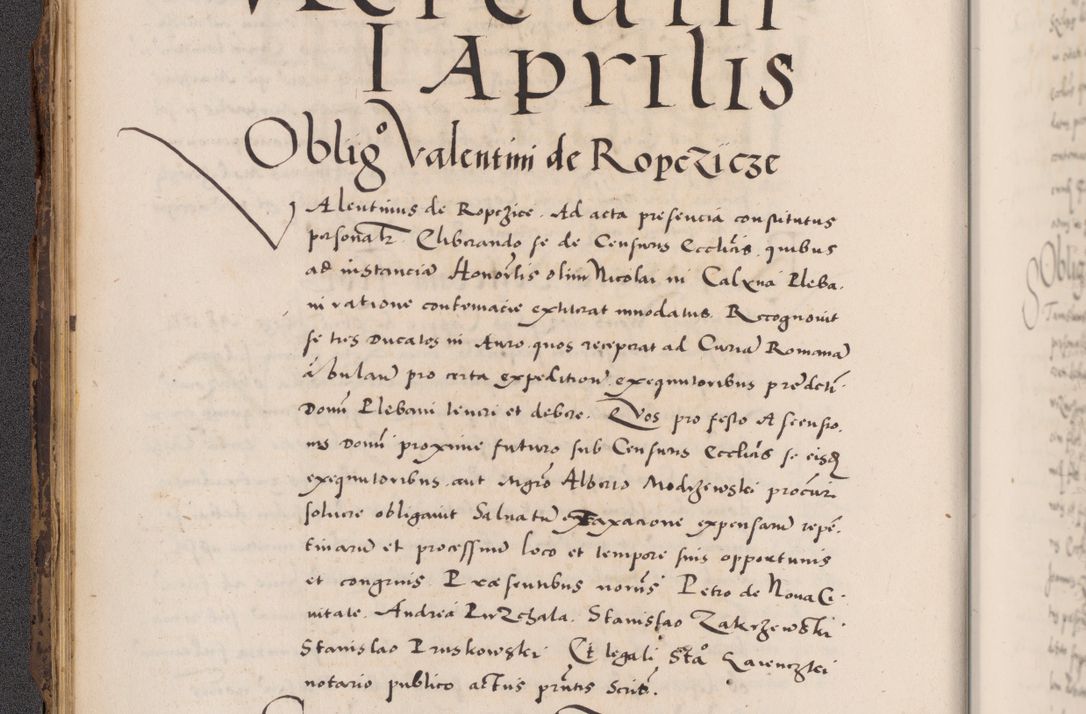 I Aprilis
Obligo Valentini de Ropczicze
VAlentinus de Ropczice. Ad acta presencia constitutus
personalr. Cliberando se de Censuris Eccliãs. quibus
ad instancia Honorlis olim Nicolai in Calxna Pleba.
ni ratione contumacie extiterat innodatus. Recognovit
se tres Ducatos in Auro quos receperat ad Curiã Romanã
ãbulanđ pro certa expeditione. exequutoribus predcti
Domi Plebani teneri et debere. Quos pro festo Ascensio.
nis Domi proxime futuro sub Censuris Eccliãs se eisd
exequutoribus aut Mgro Alberto Modrzewski procuri
solvere obligavit Salva tñ extaxacione expensarũ repe.
tinarũ et processuũ loco et tempore suis opportunis
et congruis. Præsentibus norũs Petro de Nova Ci.
vitate. Andrea Przchala. Stanislao Zakrzewski
Stanislao Pruskowski Et legali Stão Larenczki
notario publico actus pñtis Scriba.